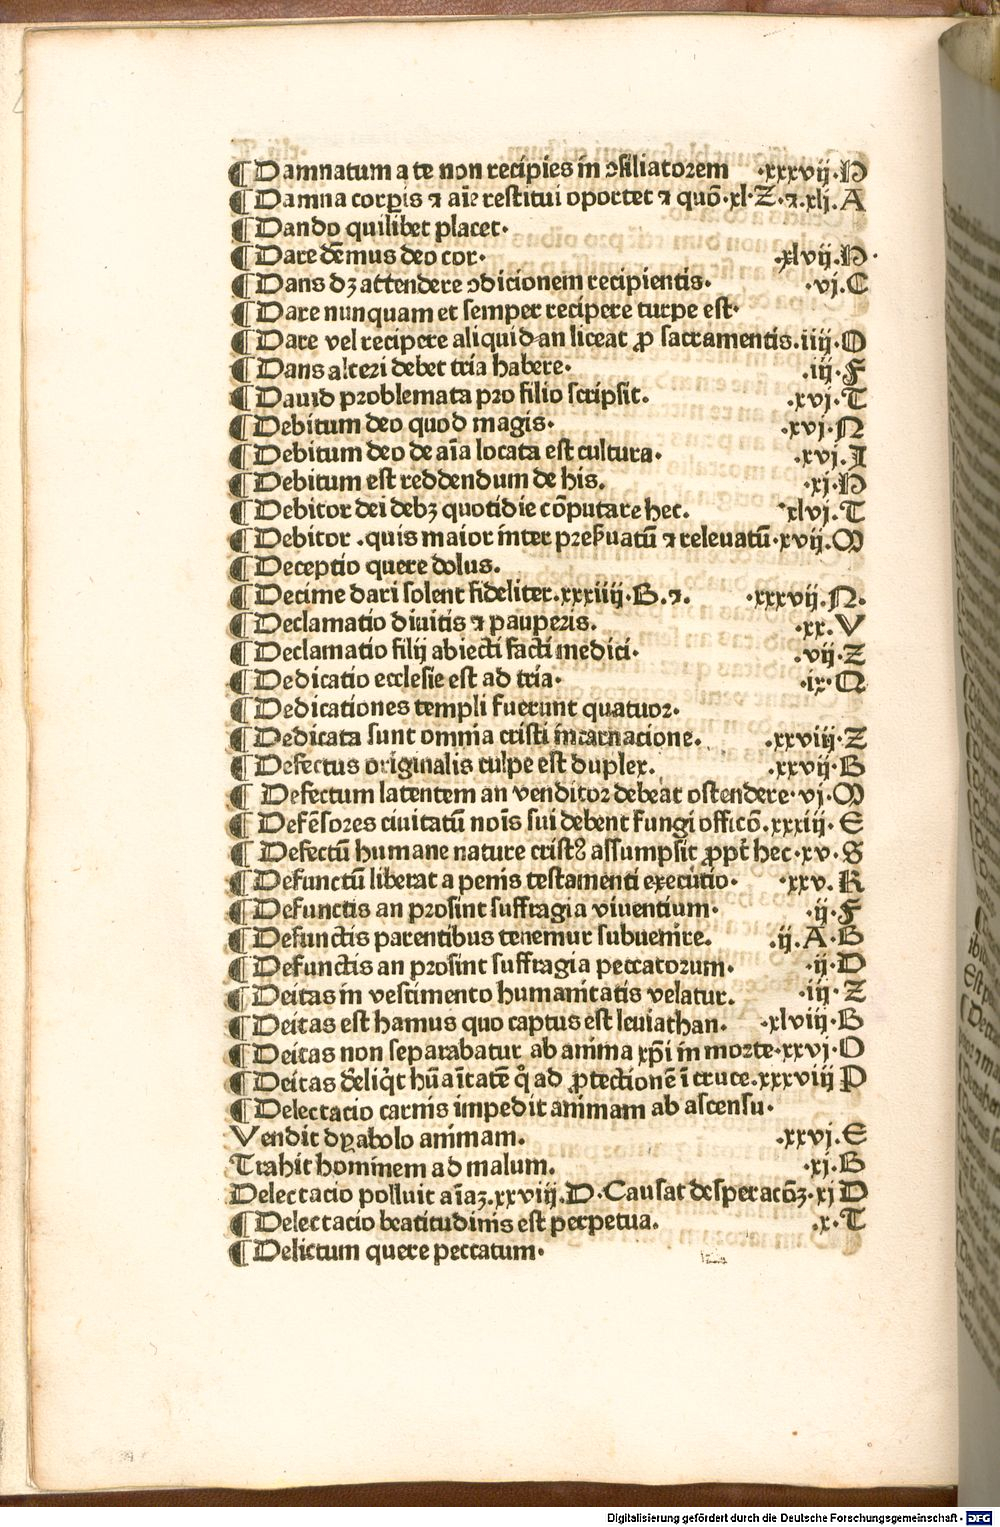 ¶Damnatum a te non recipies in ↄsiliatorem .xxxvij.H
¶Damna corꝑis ⁊ aīe restitui oportet ⁊ quō.xl.Z.⁊.xlj.A
¶Dando quilibet placet.
¶Dare dēmus deo cor. .xlvij.H.
¶Dans dꝫ attendere ↄdicionem recipientis. .vj.C
¶Dare nunquam et semper recipere turpe est.
¶Dare vel recipere aliquid an liceat ꝓ sacramentis.iiij.O
¶Dans alteri debet tria habere. .iij.F
¶Dauid problemata pro filio scripsit. .xvj.T
¶Debitum deo quod magis. .xvj.N
¶Debitum deo de aīa locata est cultura. .xvj.I
¶Debitum est reddendum de his. .xj.H
¶Debitor dei debꝫ quotidie cōputare hec. .xlvj.T
¶Debitor .quis maior inter preẞuatū ⁊ releuatū.xvij.M
¶Deceptio quere dolus.
¶Decime dari solent fideliter.xxxiiij.B.⁊. .xxxvij.N.
¶Declamatio diuitis ⁊ pauperis. .xx.V
¶Declamatio filij abiecti facti medici. .vij.Z
¶Dedicatio ecclesie est ad tria. .ix.Q
¶Dedicationes templi fuerunt quatuor.
¶Dedicata sunt omnia cristi incarnacione. .xxviij.Z
¶Defectus originalis culpe est duplex. .xxvij.B
¶Defectum latentem an venditor debeat ostendere.vj.M
¶Defēsores ciuitatū noīs sui debent fungi officō.xxxiij.E
¶Defectū humane nature cristꝰ assumpsit ꝓpt̄ hec.xv.S
¶Defunctū liberat a penis testamenti executio. .xxv.K
¶Defunctis an prosint suffragia viuentium. .ij.F
¶Defunctis parentibus tenemur subuenire. .ij.A.B
¶Defunctis an prosint suffragia peccatorum. .ij.D
¶Deitas in vestimento humanitatis velatur. .iij.Z
¶Deitas est hamus quo captus est leuiathan. .xlviij.B
¶Deitas non separabatur ab anima xp̄i in morte.xxvj.O
¶Deitas dēliq̄t hūaītatē q̄ ad ꝓtectionē ī cruce.xxxviij P
¶Delectacio carnis impedit animam ab ascensu.
Vendit dyabolo animam. .xxvj.E
Trahit hominem ad malum. .xj.B
Delectacio polluit aīaꝫ.xxviij.D.Causat desperacōꝫ.xj D
¶Delectacio beatitudinis est perpetua. .x.T
¶Delictum quere peccatum.
Digitalisierung gefördert durch die Deutsche Forschungsgemeinschaft - DFG